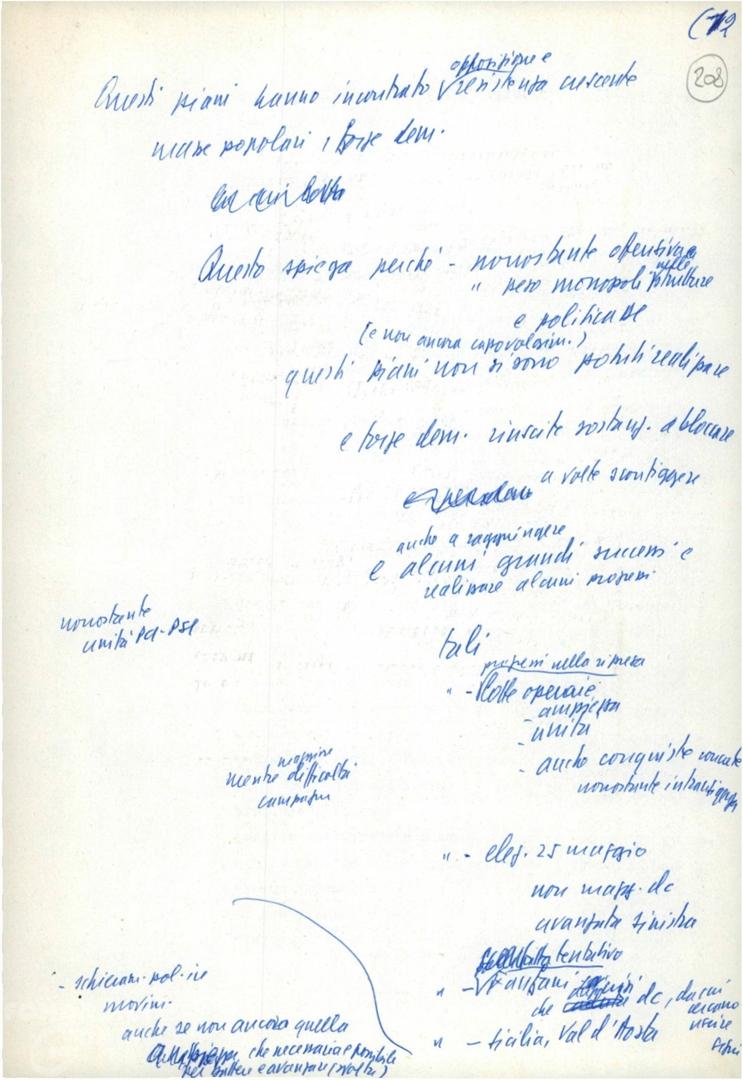 (12
208
opposizione e
Questi piani hanno incontrato √ resistenza crescente
masse popolari, forze dem.
Questo spiega perché - nonostante offensiva
" peso monopoli nelle strutture
e politica DC
(e non ancora capovolgim.)
questi piani non si sono potuti realizzare
e forze dem. riuscite sostanz. a bloccare
a volte sconfiggere
anche a raggiungere
e alcuni grandi successi e
realizzare alcuni progressi
nonostante
unità PCI-PSI
tali
progressi nella ripresa
" - √ lotte operaie
- ampiezza
- unità
- anche conquiste concrete
nonostante intransigenza
maggiore
mentre difficoltà
campagna
" - elez. 25 maggio
non magg. dc
avanzata sinistra
tentativo
" - √ Fanfani
che dc, da cui
cercano
uscire
" - Sicilia, Val d'Aosta
- schieram. pol. in
movim.
anche se non ancora quella
che necessaria e possibile
per battere e avanzare (svolta)